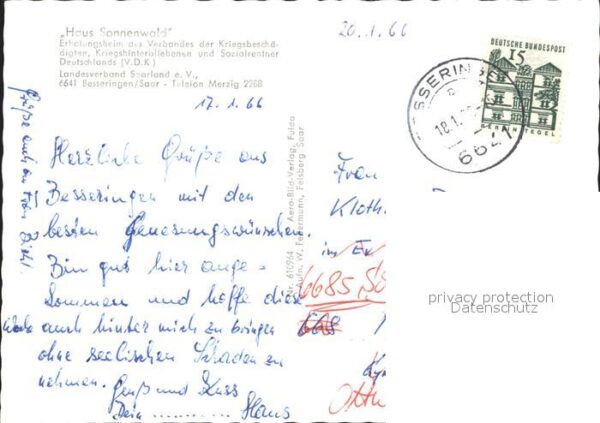 „Haus Sonnenwald"
Erholungsheim des Verbandes der Kriegsbeschä-
digten, Kriegshinterbliebenen und Sozialrentner
Deutschlands (V.D.K.)
Landesverband Saarland e. V.,
6641 Besseringen/Saar - Telefon Merzig 2268
20.1.66
17.1.66
Grüße auch an Frau
Herzliche Grüße aus
Besseringen mit den
besten Genesungswünschen.
Bin gut hier ange-
kommen und hoffe diese
Woche auch hinter mich zu bringen
ohne seelischen Schaden zu
nehmen.
Gruß und Kuss
Dein .......... Hans
Nr. 610964 Aero-Bild-Verlag, Fulda
Aufn. W. Federmann, Felsberg Saar
DEUTSCHE BUNDESPOST
15
TEGEL
BESSERINGEN
18.1.
6641
Frau
Kloth.
im
6685
668
privacy protection
Datenschutz